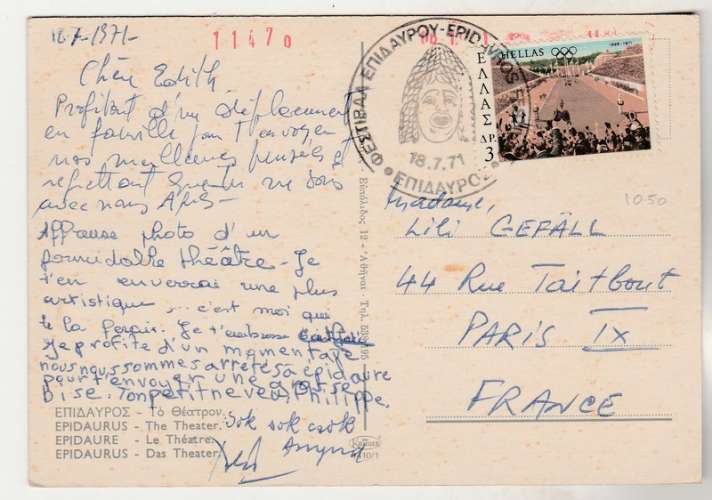 18-7-1971-
11470
Chère Edith
Profitant d'un déplacement
en famille pour t'envoyer
nos meilleures pensées et
regrettant que tu ne sois
avec nous
Affreuse photo d'un
formidable théâtre - Je
t'en enverrai une plus
artistique ... c'est moi qui
te la ferai. Je t'embrasse
Je profite d'un moment
nous nous sommes arretés a épidaure
pour t'envoyer une grosse
bise. Ton petit neveu, Philippe.
Sok sok csók
ΕΠΙΔΑΥΡΟΣ - Τὸ Θέατρον.
EPIDAURUS - The Theater.
EPIDAURE - Le Théatre.
EPIDAURUS - Das Theater.
ΦΕΣΤΙΒΑΛ ΕΠΙΔΑΥΡΟΥ-EPIDAVROS
18.7.71
• ΕΠΙΔΑΥΡΟΣ •
HELLAS
ΕΛΛΑΣ ΔΡ. 3
1050
Madame,
Lili GEFÄLL
44 Rue Taitbout
PARIS IX
FRANCE